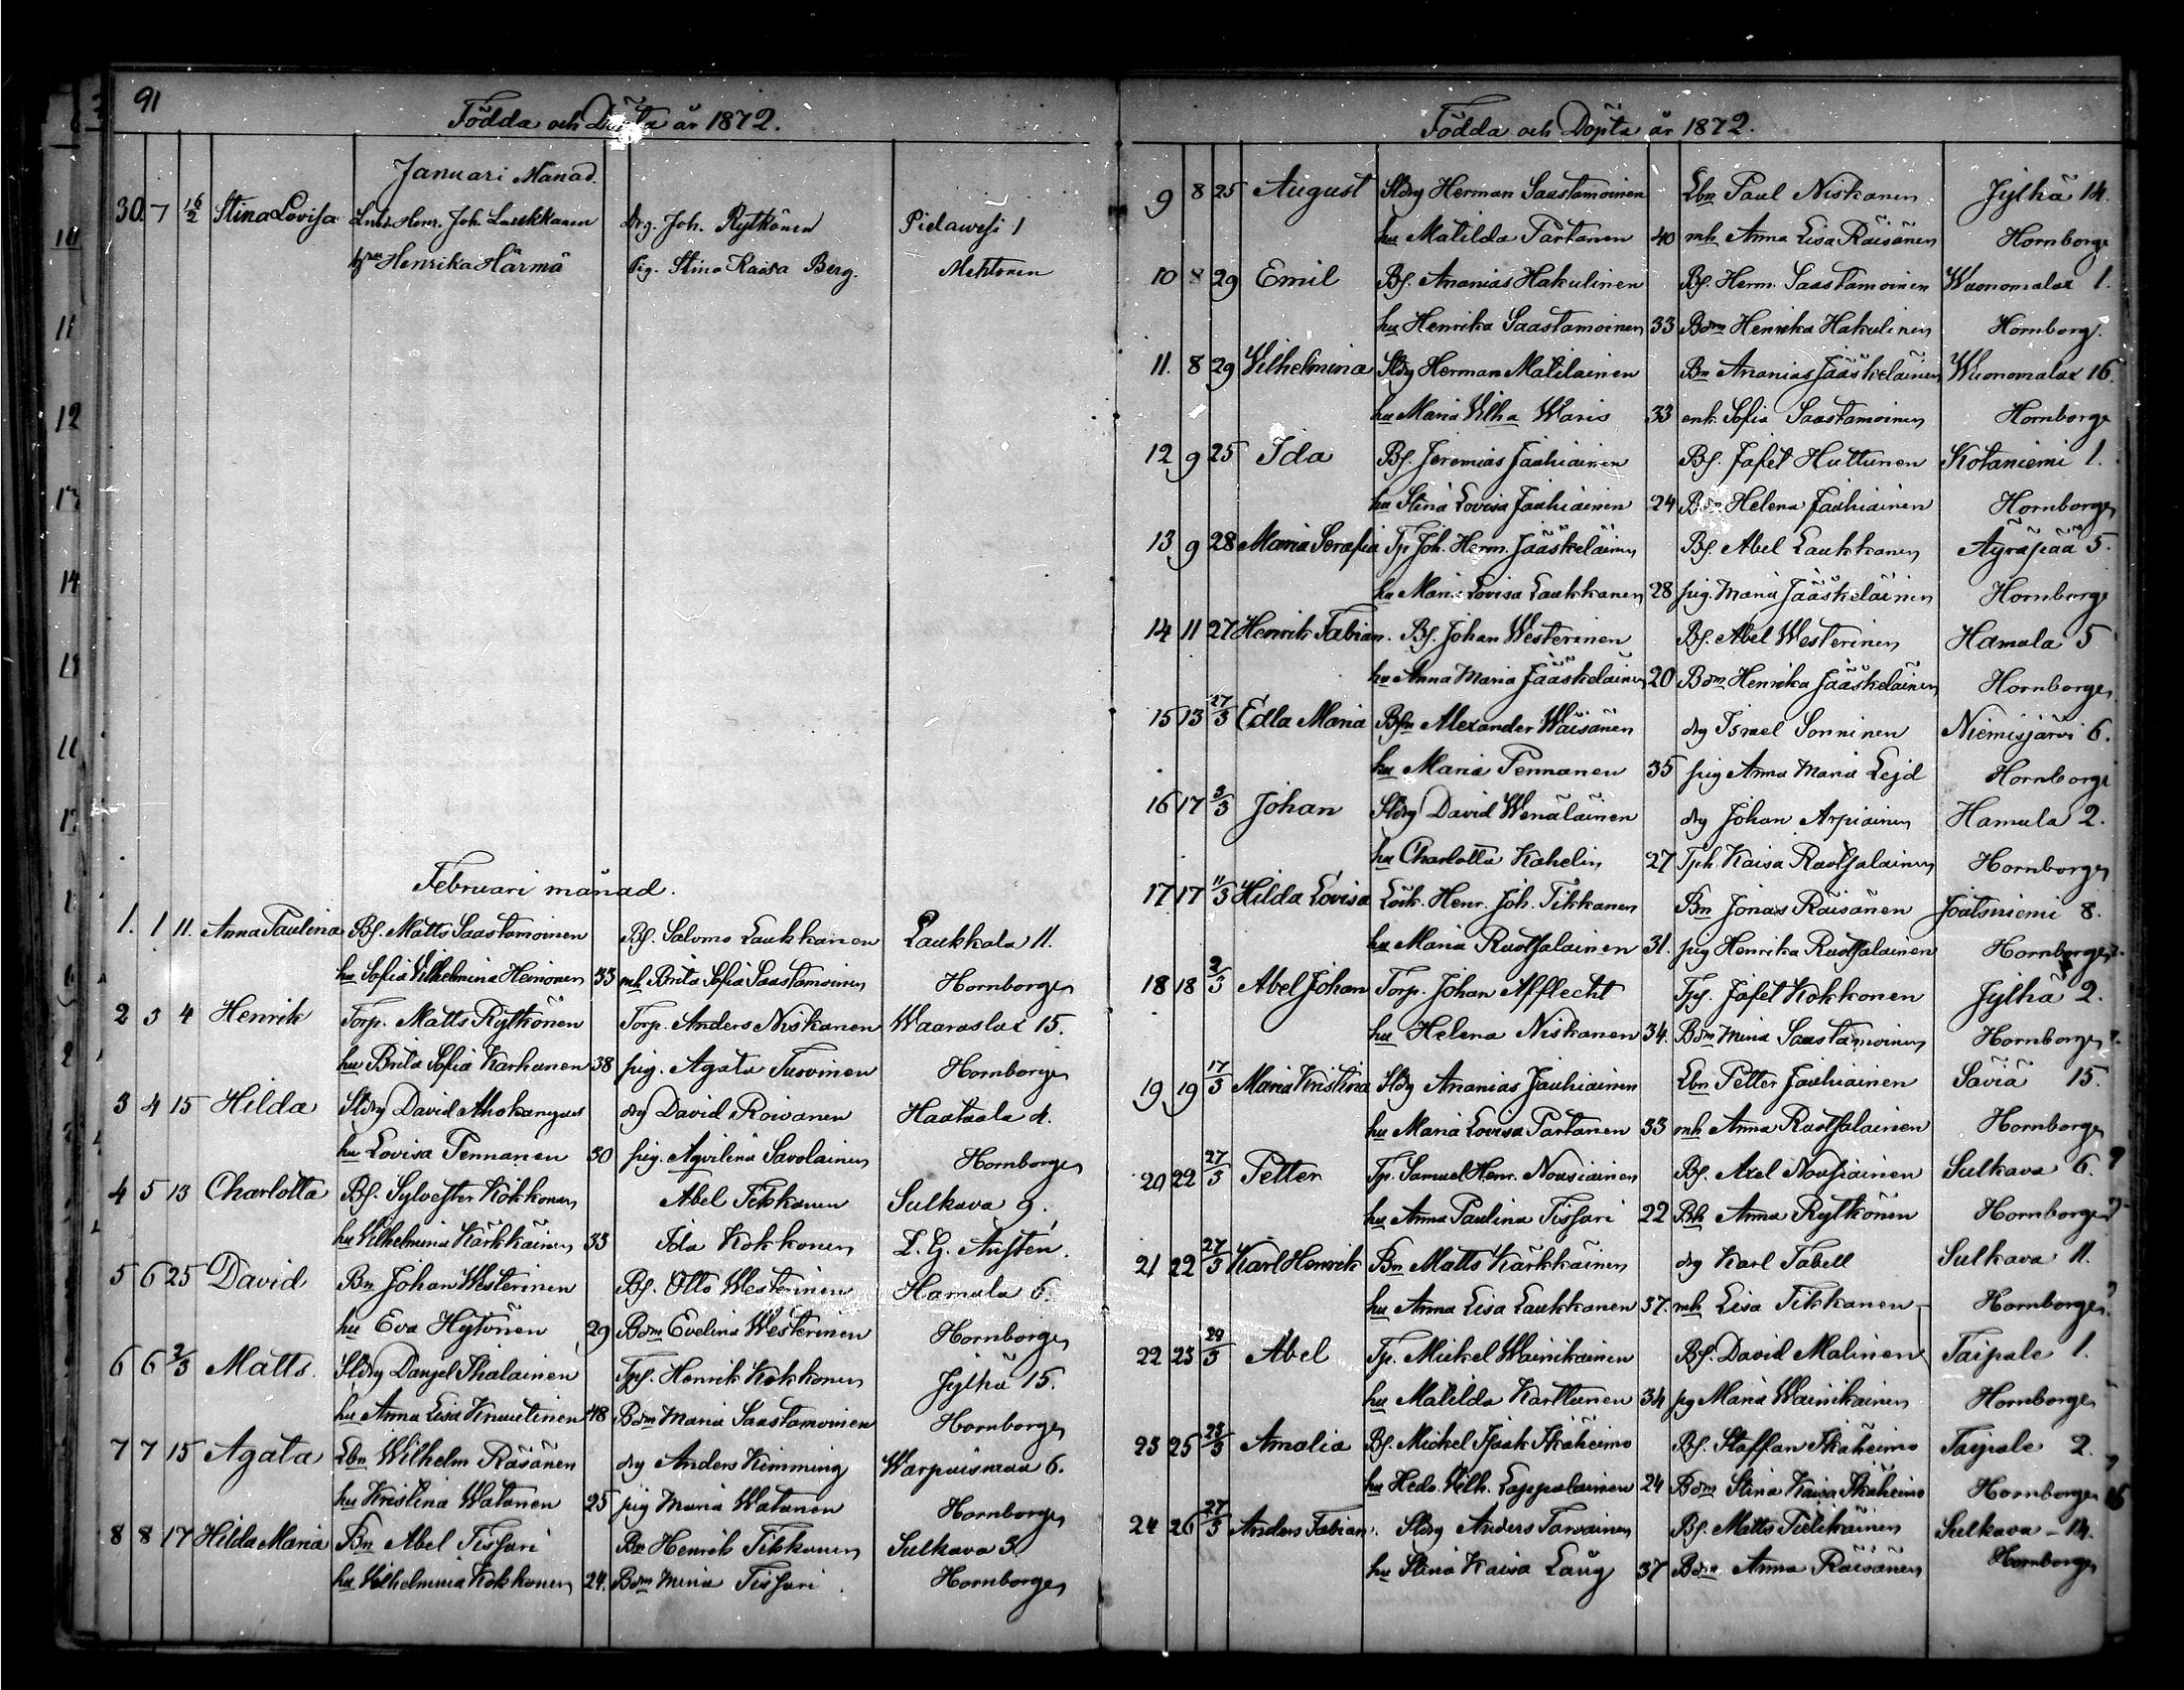 91
Födda och Döpta år 1872.
Januari Månad.
30. 7 16/2 Stina Lovisa Lnbd. Henr. Joh. Laukkanen drg. Joh. Rytkönen Pielawesi 1
hu Henrika Härmä pig. Stina Kaisa Berg. Mehtonen
Februari månad.
1. 1 11. Anna Paulina Bf. Matts Saastamoinen Bf. Salomo Laukkanen Laukkala 11.
hu Sofia Vilhelmina Heinonen 33 mh Brita Sofia Saastamoinen Hornborg
2 3 4 Henrik Torp. Matts Rytkönen Torp. Anders Niskanen Waaraslax 15.
hu Brita Sofia Karhunen 38 pig. Agata Tuovinen Hornborg
3 4 15 Hilda Stdrg David Ahokangas drg David Roivanen Haatala 4.
hu Lovisa Pennanen 30 pig. Aqvilina Savolainen Hornborg
4 5 13 Charlotta Bf. Sylvester Kokkonen Abel Tikkanen Sulkava 9.
hu Vilhelmina Kärkkäinen 33 Ida Kokkonen L. G. Austén.
5 6 25 David Bn Johan Westerinen Bf. Otto Westerinen Hamula 6.
hu Eva Hytönen 29 Bdm Evelina Westerinen Hornborg
6 6 2/3 Matts. Stdrg Danjel Ihalainen Tpf. Henrik Kokkonen Jylhä 15.
hu Anna Lisa Knuutinen 48 Bdm Maria Saastamoinen Hornborg
7 7 15 Agata Lbn Wilhelm Räsänen drg Anders Kimming Warpaismaa 6.
hu Kristina Watanen 25 pig Maria Watanen Hornborg
8 8 17 Hilda Maria Bn Abel Tissari Bn Henrik Tikkanen Sulkava 3.
hu Vilhelmina Kokkonen 24. Bdm Mina Tissari Hornborg
Födda och Döpta år 1872.
9 8 25 August Stdrg Herman Saastamoinen Lbn Paul Niskanen Jylhä 14.
hu Matilda Tartanen 40 mh Anna Lisa Räisänen Hornborg
10 8 29 Emil Bf. Ananias Hakulinen Bf. Herm. Saastamoinen Wuonomalax 1.
hu Henrika Saastamoinen 33 Bdm Henrika Hakulinen Hornborg.
11. 8 29 Vilhelmina Stdrg Herman Matilainen Bn Ananias Jääskeläinen Wuonomalax 16.
hu Maria Vilha Waris 33 enk. Sofia Saastamoinen Hornborg
12 9 25 Ida Bf. Jeremias Jauhiainen Bf. Jafet Huttunen Kotaniemi 1.
hu Stina Lovisa Jauhiainen 24 Bdm Helena Jauhiainen Hornborg
13 9 28 Maria Serafia Tp Joh. Herm. Jääskeläinen Bf. Abel Laukkanen Äyräpää 5.
hu Maria Lovisa Laukkanen 28 pig. Maria Jääskeläinen Hornborg
14 11 27 Henrik Fabian. Bf. Johan Westerinen Bf. Abel Westerinen Hamula 5
hu Anna Maria Jääskeläinen 20 Bdm Henrika Jääskeläinen Hornborg
15 13 27/3 Edla Maria Bfn Alexander Wäisänen drg Israel Sonninen Niemisjärvi 6.
hu Maria Pennanen 35 pig Anna Maria Lejd Hornborg
16 17 3/3 Johan Stdrg David Wenäläinen drg Johan Arpiainen Hamula 2.
hu Charlotta Kahelin 27 Tph Kaisa Ruotsalainen Hornborg
17 17 11/3 Hilda Lovisa Lösk. Henr. Joh. Tikkanen Bn Jonas Räisänen Joutsniemi 8.
hu Maria Ruotsalainen 31. pig Henrika Ruotsalainen Hornborg
18 18 2/3 Abel Johan Torp. Johan Afflecht Tpf. Jafet Kokkonen Jylhä 2.
hu Helena Niskanen 34. Bdm Mina Saastamoinen Hornborg
19 19 17/3 Maria Kristina Stdrg Ananias Jauhiainen Lbn Petter Jauhiainen Säviä 15.
hu Maria Lovisa Partanen 33 mh Anna Ruotsalainen Hornborg
20 22 27/3 Petter Tp. Samuel Henr. Nousiainen Bf. Axel Nousiainen Sulkava 6.
hu Anna Paulina Tissari 22 Bh Anna Rytkönen Hornborg
21 22 27/3 Karl Henrik Bn Matts Kärkkäinen drg Karl Tabell Sulkava 11.
hu Anna Lisa Laukkanen 37. mh Lisa Tikkanen Hornborg
22 23 29/3 Abel Tp. Mickel Wainikainen Bf. David Malinen Taipale 1.
hu Matilda Karttunen 34 pg Maria Wainikainen Hornborg
23 25 23/3 Amalia Bf. Mickel Isaak Ikäheimo Bf. Staffan Ikäheimo Taipale 2.
hu Hedv. Vilh. Lappalainen 24 Bdm Stina Kaisa Ikäheimo Hornborg
24 26 27/3 Anders Fabian. Stdrg Anders Tarvainen Bf. Matts Tielikäinen Sulkava – 14.
hu Stina Kaisa Laug 37 Bdm Anna Räisänen Hornborg